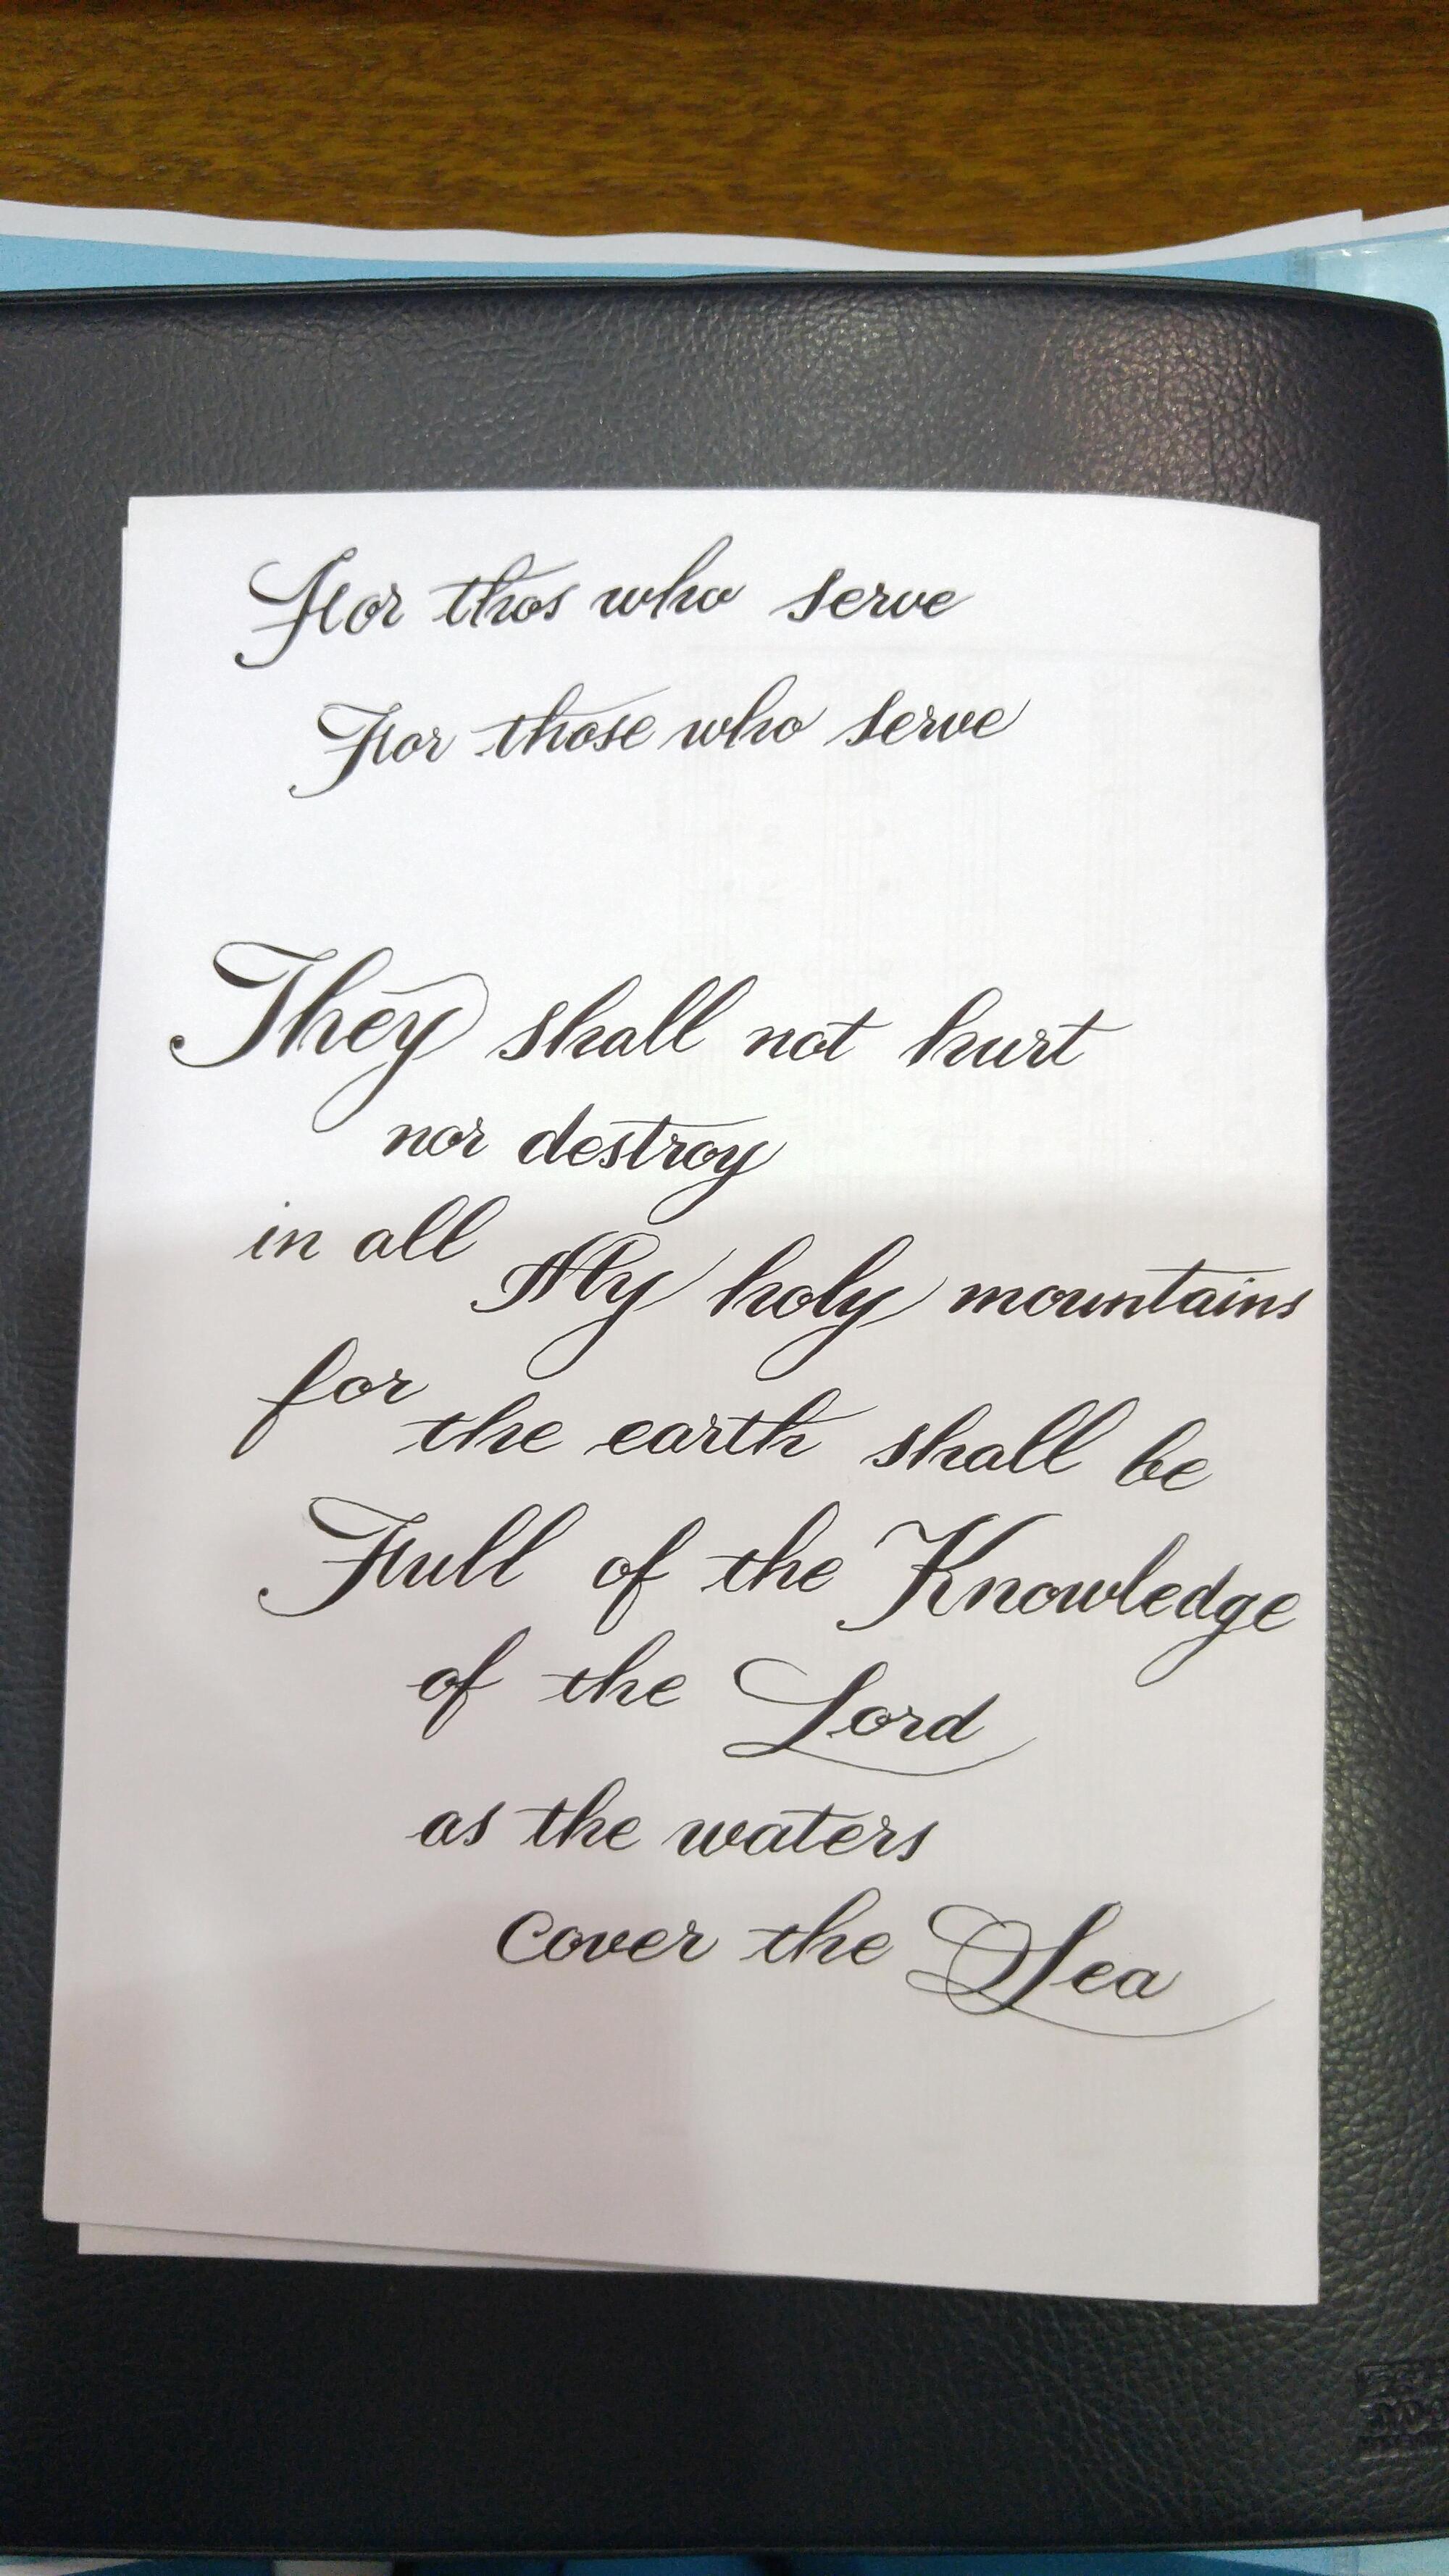 For thos who serve
For those who serve
They shall not hurt
nor destroy
in all My holy mountains
for the earth shall be
Full of the Knowledge
of the Lord
as the waters
cover the Sea